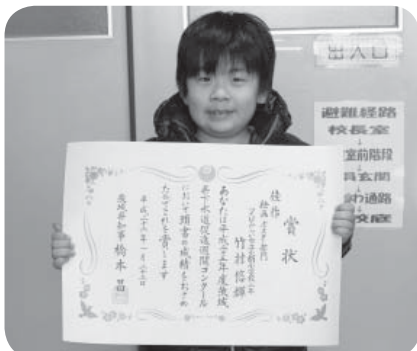 出入口
避難経路
校長室
↓
室前階段
↓
員玄関
↓
わ通路
↓
校庭
賞状
佳作
絵画・ポスター部門
竹村悠輝
あなたは平成二十五年度茨城
県下水道促進週間コンクール
において頭書の成績をおさめ
たのでこれを賞します
平成二十六年一月二十五日
茨城県知事 橋本昌